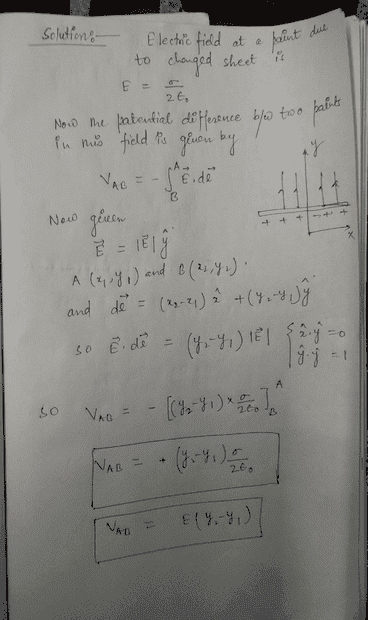 Solution:- Electric field at a point due
to charged sheet is
E = σ / 2ε₀
Now the potential difference b/w two points
in this field is given by
V_AB = - ∫_B^A E⃗.dl⃗
y
+ + + - + +
x
Now given
E⃗ = |E⃗| ŷ
A (x₁, y₁) and B (x₂, y₂).
and dl⃗ = (x₂-x₁) x̂ + (y₂-y₁) ŷ
so E⃗.dl⃗ = (y₂-y₁) |E| { x̂.ŷ = 0
ŷ.ŷ = 1
so V_AB = - [(y₂-y₁) × σ/2ε₀]_B^A
V_AB = + (y₂-y₁) σ/2ε₀
V_AB = E (y₂-y₁)